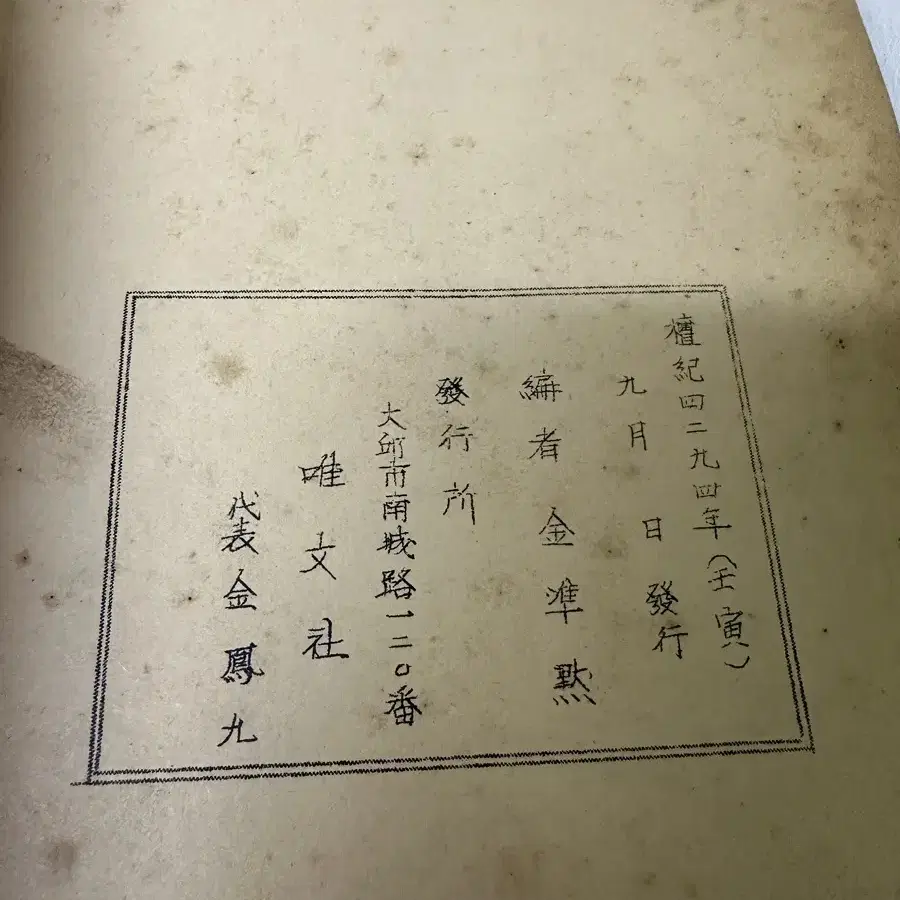 檀紀四二九四年(壬寅)
九月 日發行
編者 金準黙
發行所
大邱市南城路一二〇番
唯文社
代表 金鳳九